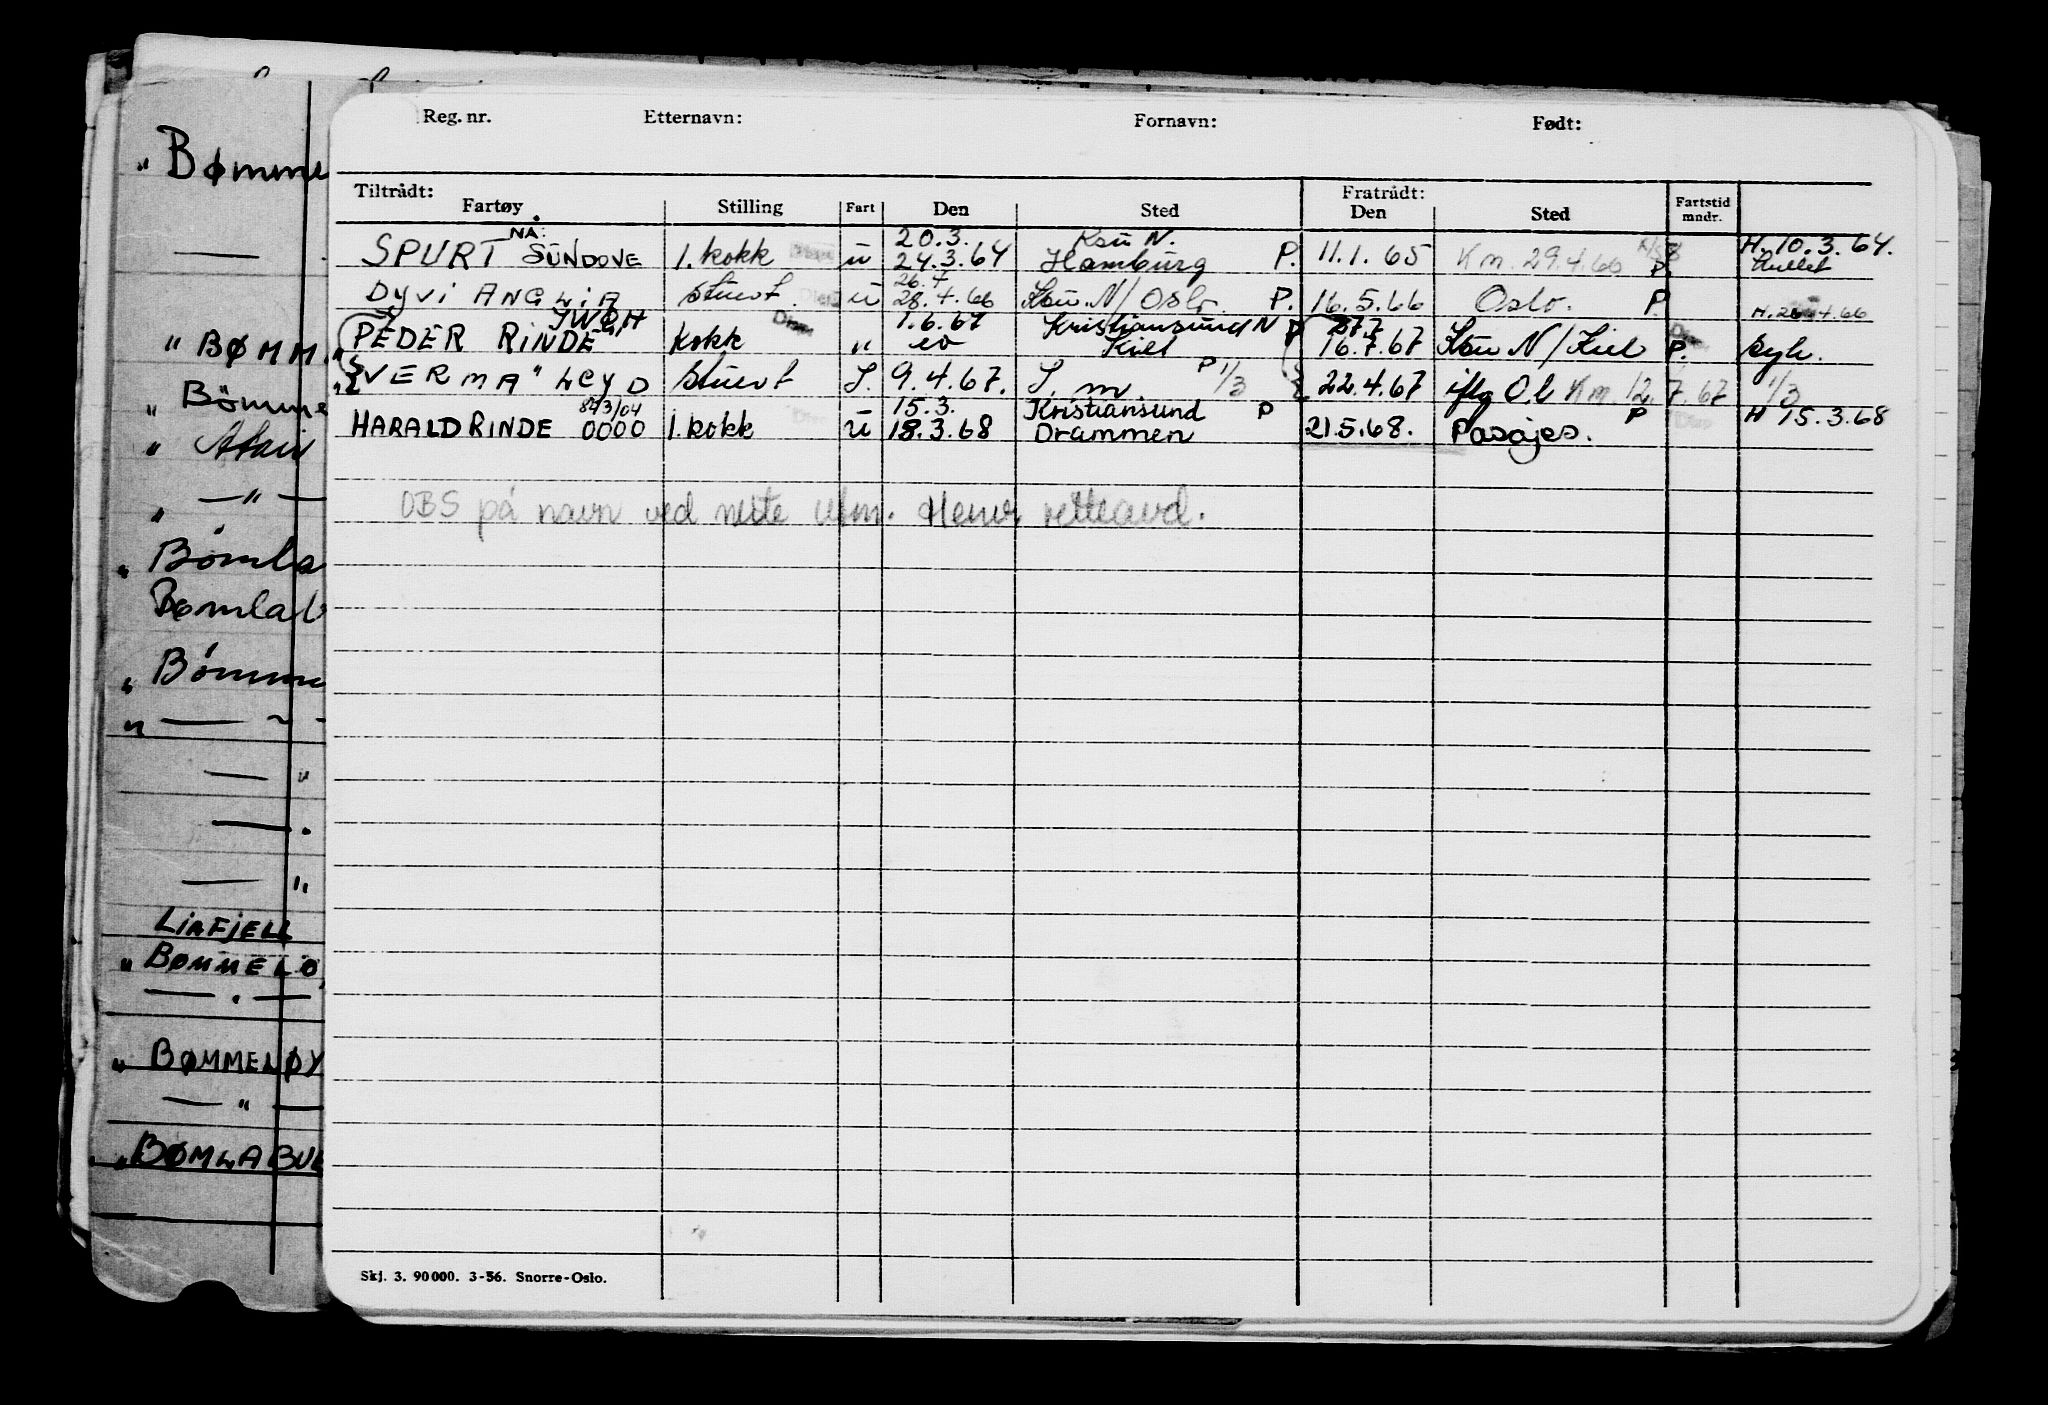 Reg. nr. Etternavn: Fornavn: Født:
Tiltrådt: Fratrådt:
Fartøy Stilling Fart Den Sted Den Sted Fartstid mndr.
NÅ: 20.3. Ksu N. H. 10.3.64.
SPURT SUNDOVE 1. kokk u 24.3.64 Hamburg P. 11.1.65 Km. 29.4.66 P.
26.4
DYVI ANGLIA stuert u 28.4.66 Ksu. N/Oslo. P. 16.5.66 Oslo. P. H. 26.4.66
JWQH 1.6.67 Kristiansund N P 27.7
"PEDER RINDE" kokk " eo Kiel 16.7.67 Ksu N/Kiel P. syk.
"VERMA" LCYD stuert I. 9.4.67. I. m P 1/3 22.4.67 iflg O.b Km. 12.7.67 1/3
82/3/04 15.3. Kristiansund P P H 15.3.68
HARALD RINDE 0000 1. kokk u 18.3.68 Drammen 21.5.68. Pasajes.
OBS på navn ved neste utm. Henv retteavd.
Skj. 3. 90000. 3-56. Snorre-Oslo.
" Bømme
" BØMM
" Bömme
" Atair
— " —
" Bømla
Bømlab
" Bømme
" — ~ -
— "
— .
— "
LIAFJELL
" BØMMELØ
— . —
" BØMMELØY
— " —
" BØMLABUE